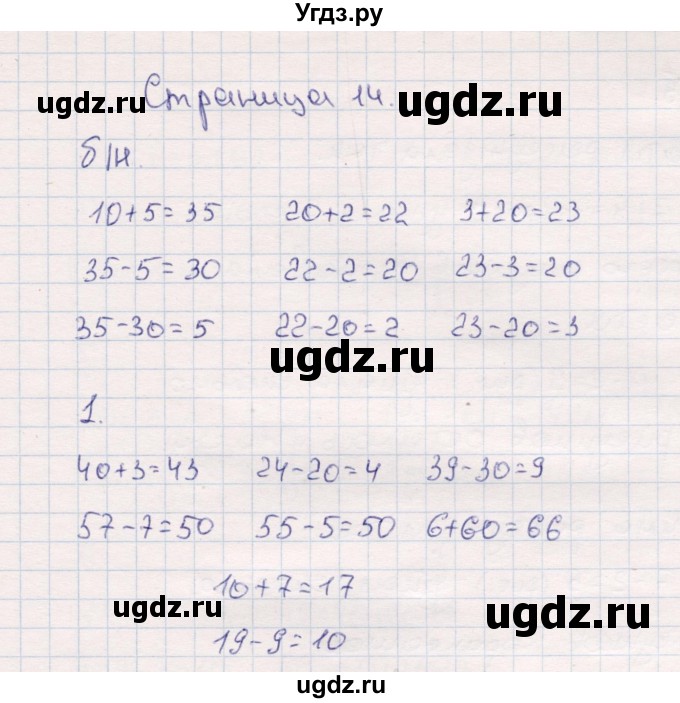 Угдз.ру
Страница 14.
ugdz.ru ugdz.ru
б/н.
10+5=35 20+2=22 3+20=23
35-5=30 22-2=20 23-3=20
35-30=5 22-20=2 23-20=3
ugdz.ru
1.
40+3=43 24-20=4 39-30=9
57-7=50 55-5=50 6+60=66
10+7=17
ugdz.ru ugdz.ru
19-9=10
ugdz.ru